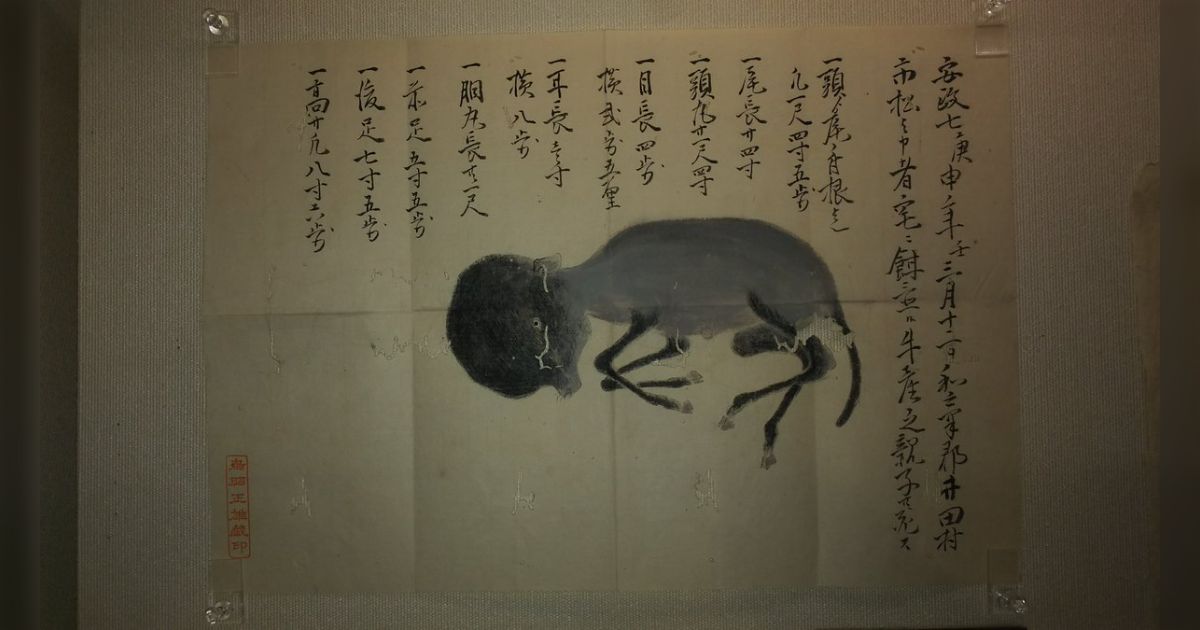 安政七庚申年 三月十二日 和気郡井田村
市松ト申者宅ニ飼置候牛産之親子共死ス
一頭ゟ尾ノ身根迄
凡一尺四寸五歩
一尾長サ四寸
一頭丸サ一尺四寸
一目長四歩
横弐歩五厘
一耳長壱寸
横八歩
一胴丸長サ一尺
一前足五寸五歩
一後足七寸五歩
一首回サ凡八寸六歩
鳥羽正雄蔵印